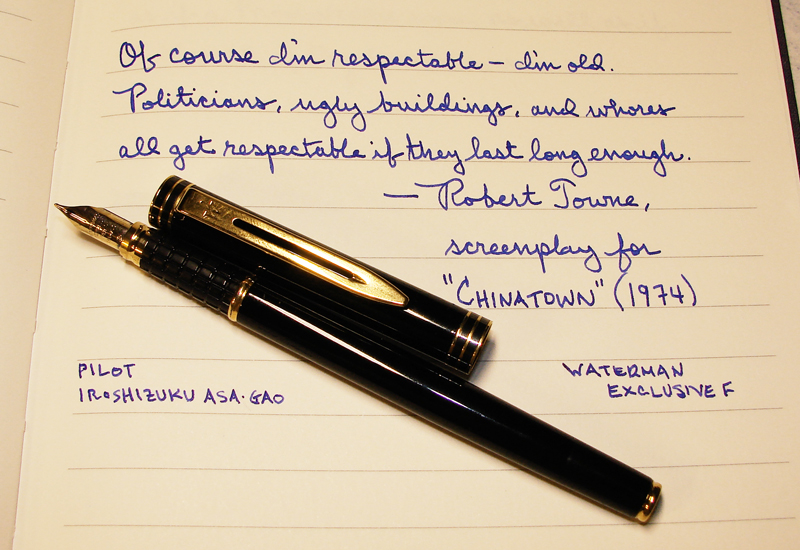 Of course I'm respectable — I'm old.
Politicians, ugly buildings, and whores
all get respectable if they last long enough.
— Robert Towne,
screenplay for
"CHINATOWN" (1974)
PILOT
IROSHIZUKU ASA·GAO
WATERMAN
EXCLUSIVE F